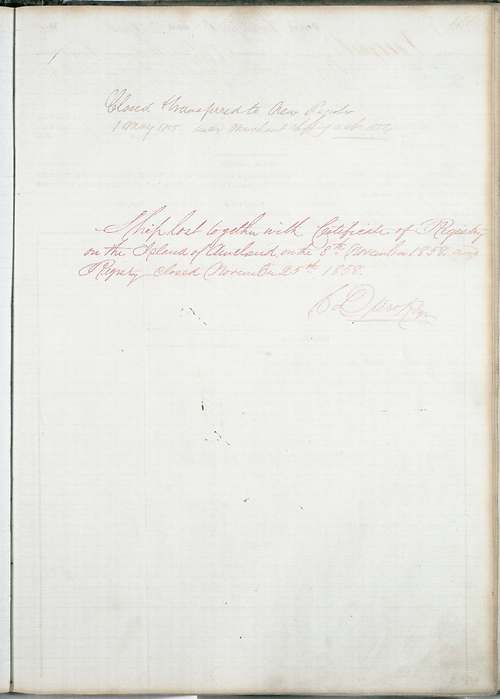 Closed & transfered to New Register
1 May 1855 under Merchant Shipping Act 1854
Ship lost together with Certificate of Registry
on the Island of on the 8th November 1858 and
Registry closed November 25th 1858.